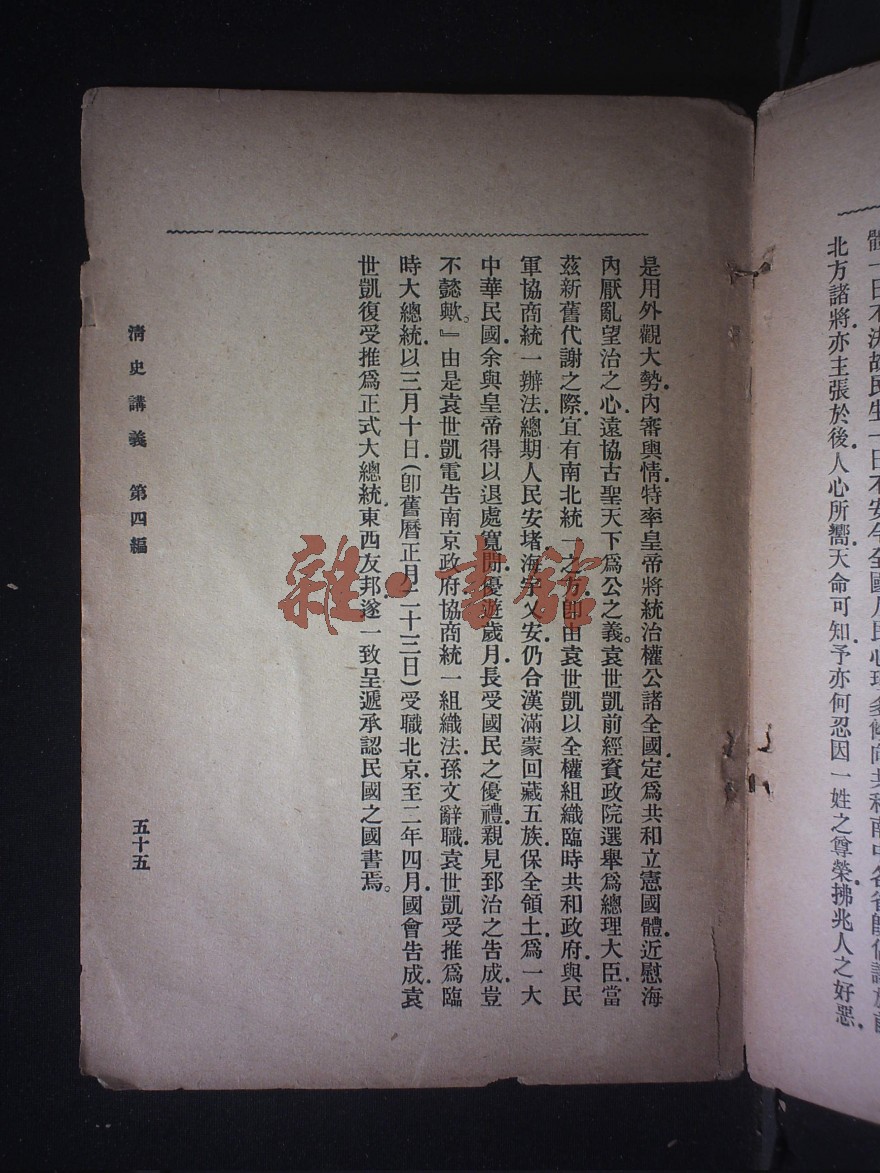 體一日不決故民生一日不安今全國人民心理多傾向共和南中各省既倡議於前
北方諸將亦主張於後人心所嚮天命可知予亦何忍因一姓之尊榮拂兆人之好惡
是用外觀大勢內審輿情特率皇帝將統治權公諸全國定爲共和立憲國體近慰海
內厭亂望治之心遠協古聖天下爲公之義。袁世凱前經資政院選舉爲總理大臣當
茲新舊代謝之際宜有南北統一之方卽由袁世凱以全權組織臨時共和政府與民
軍協商統一辦法總期人民安堵海宇乂安仍合漢滿蒙回藏五族保全領土爲一大
中華民國余與皇帝得以退處寬閒優遊歲月長受國民之優禮親見郅治之告成豈
不懿歟。』由是袁世凱電告南京政府協商統一組織法孫文辭職袁世凱受推爲臨
時大總統以三月十日(卽舊曆正月二十三日)受職北京至二年四月國會告成袁
世凱復受推爲正式大總統東西友邦遂一致呈遞承認民國之國書焉。
淸史講義 第四編
五十五
雜·書館